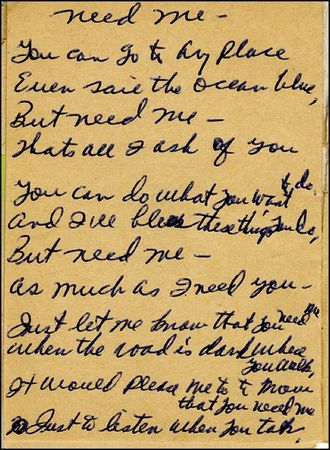 need me –
You can go to Any Place
Even sail the ocean blue,
But need me –
Thats all I ask of You
You can do what you want to do.
And I'll bless these things you do,
But need me –
As much as I need you –
Just let me know that You need me
When the road is dark where you walk,
It would please me to know
that you need me
Just to listen when you talk.